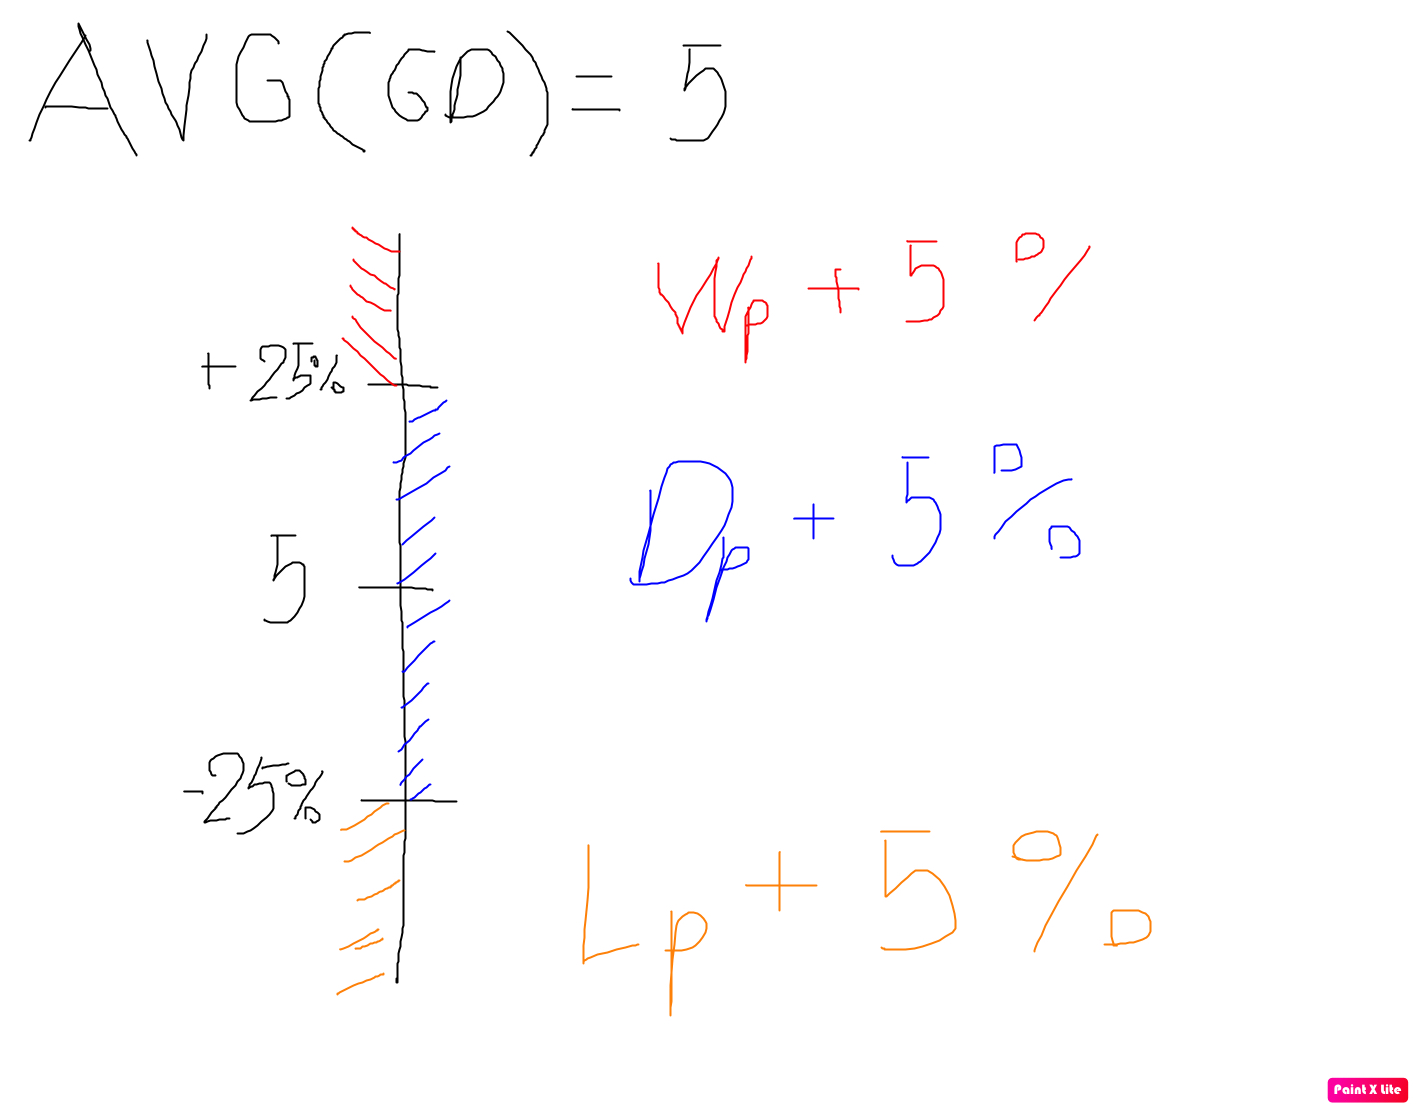 AVG(GD) = 5
Wp + 5 %
+ 25%
Dp + 5 %
5
-25%
Lp + 5 %
Paint X Lite